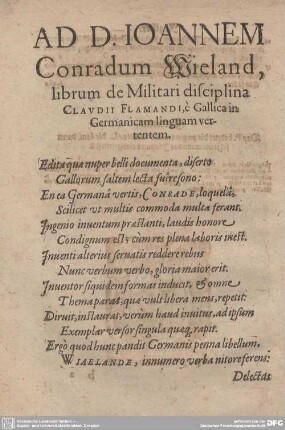 AD D. IOANNEM
Conradum Wieland,
librum de Militari disciplina
CLAVDII FLAMANDI, è Gallica in
Germanicam linguam ver-
tentem.
Edita quæ nuper belli documenta, diserto
Gallorum saltem lecta fuêre sono:
En ea Germanâ vertis, CONRADE, loquelâ,
Scilicet vt multis commoda multa ferant.
Ingenio inuentum præstanti, laudis honore
Condignum est, cùm res plena laboris inest.
Inuenti alterius seruatis reddere rebus
Nunc verbum verbo, gloria maior erit.
Inuentor siquidem formas inducit, & omne
Thema parat; quæ vult libera mens, repetit:
Diruit, instaurat, verùm haud inuitus, ad ipsum
Exemplar versor singula quæq; rapit.
Ergò quod hunc pandis Germanis penna libellum,
WIAELANDE, innumero verba nitore ferens:
Delectas